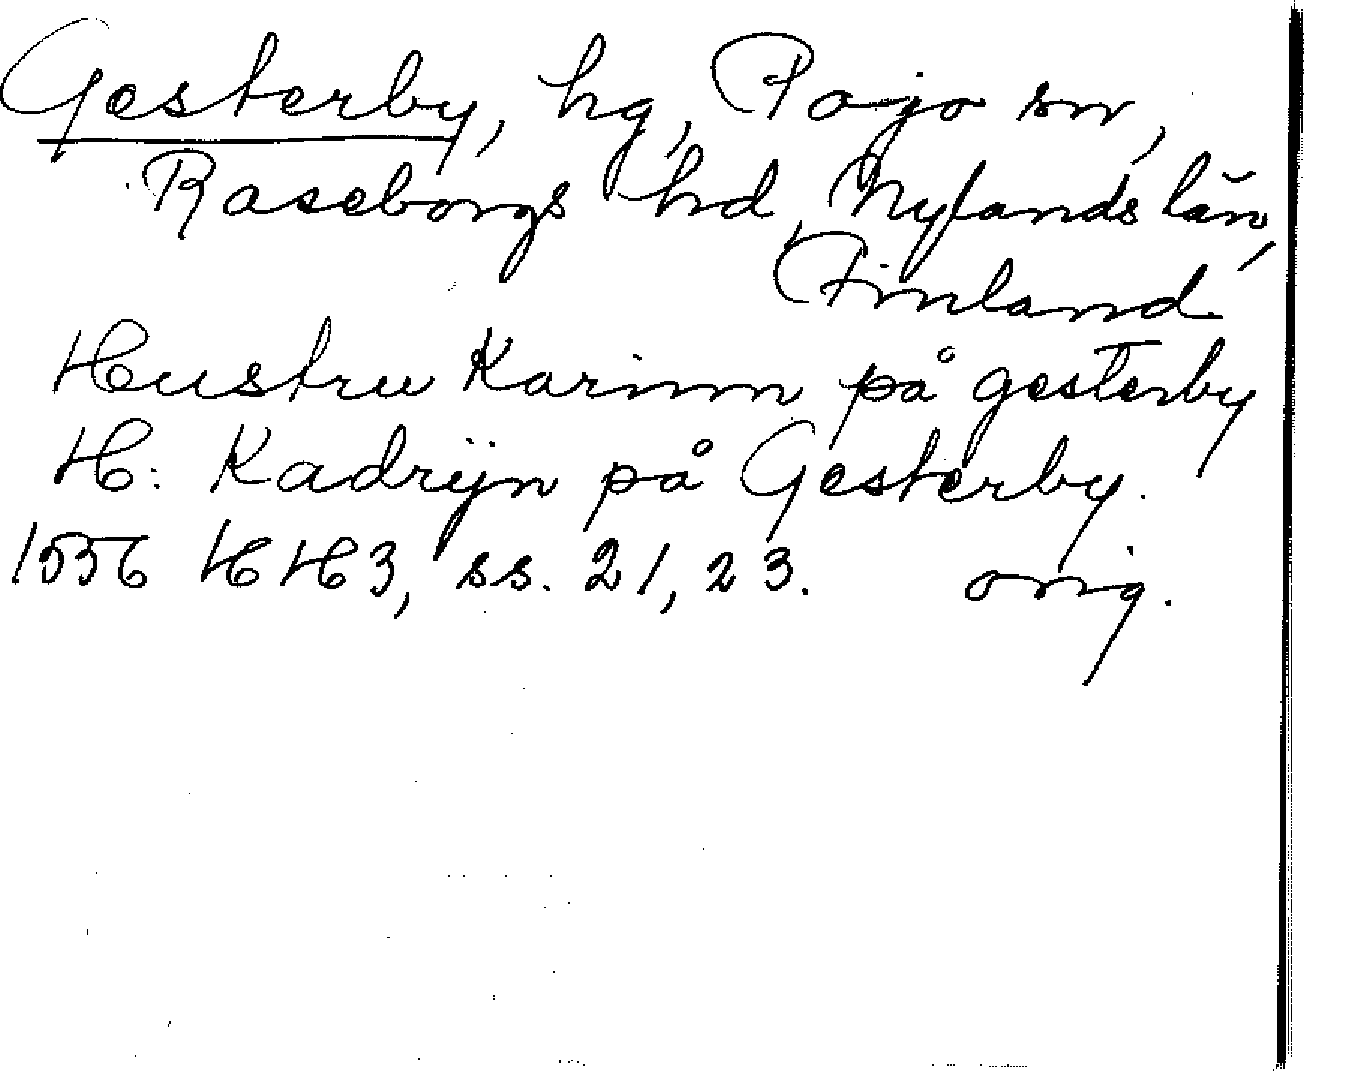 Gesterby, hg, Pojo sn,
Raseborgs hd, Nylands län,
Finland
Hustru Karinn på gesterby
H: Kadrijn på Gesterby.
1556 HH3, ss. 21, 23. orig.